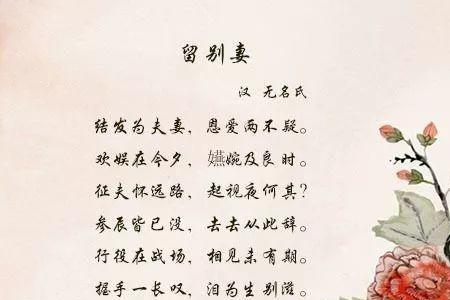 留别妻
汉 无名氏
结发为夫妻，恩爱两不疑。
欢娱在今夕，嬿婉及良时。
征夫怀远路，起视夜何其？
参辰皆已没，去去从此辞。
行役在战场，相见未有期。
握手一长叹，泪为生别滋。